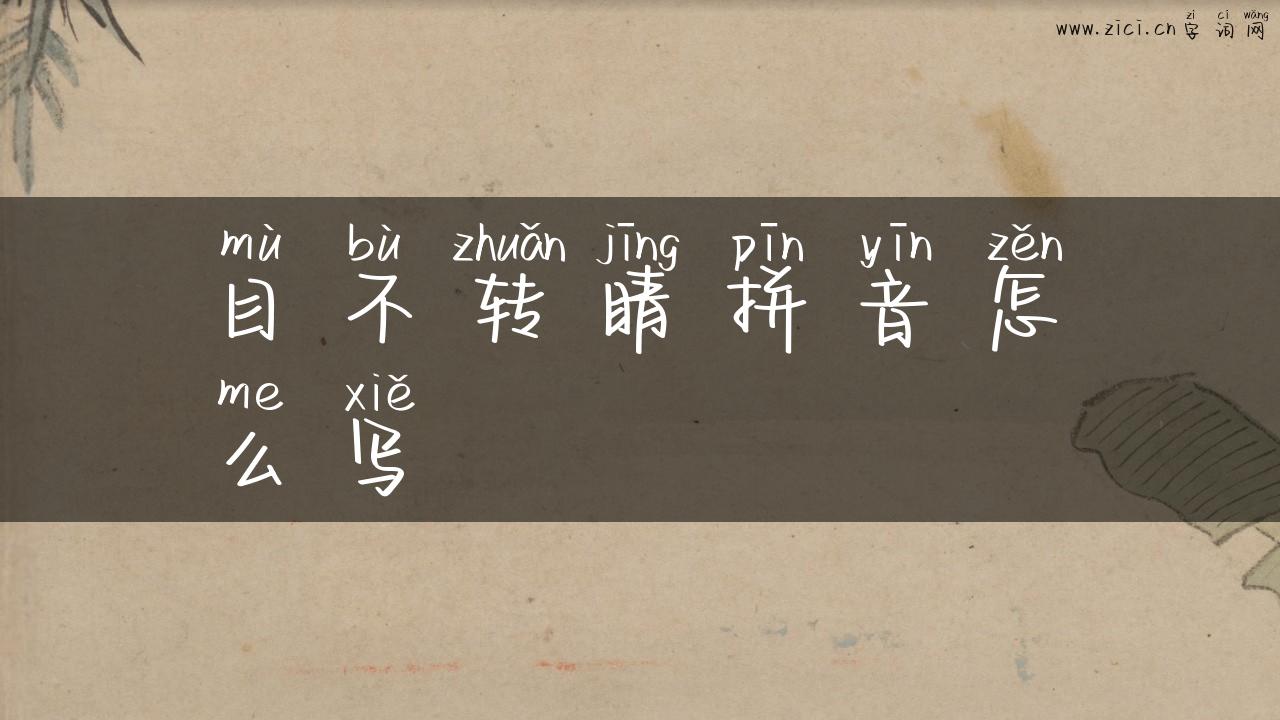 zì cí wǎng
www.zici.cn 字词网
mù bù zhuǎn jīng pīn yīn zěn
目不转睛拼音怎
me xiě
么写